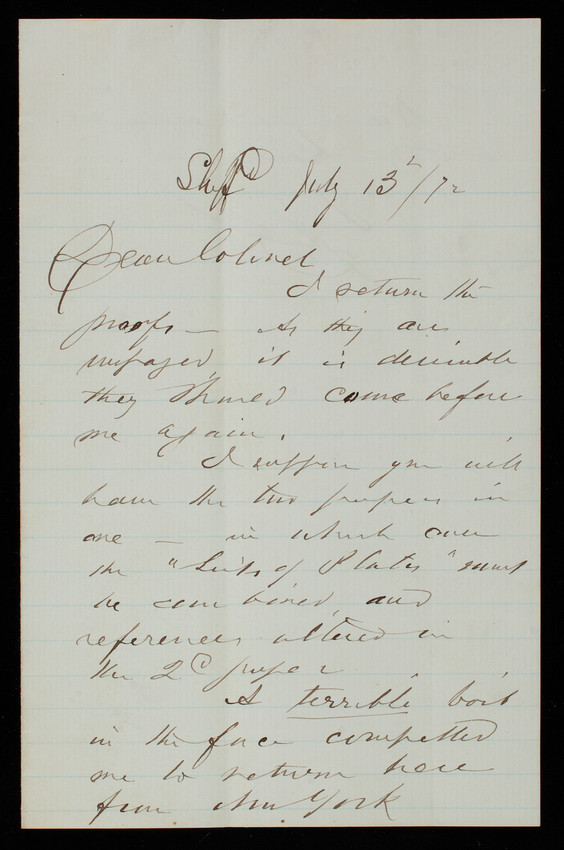 Sheffd July 13th/72
Dear Colonel
I return the
proofs — As they are
unpaged, it is desirable
they should come before
me again.
I suppose you will
have the two papers in
one — in which case
the "Lists of Plates" must
be combined, and
references altered in
the 2d paper.
A terrible boil
in the face compelled
me to return here
from New York